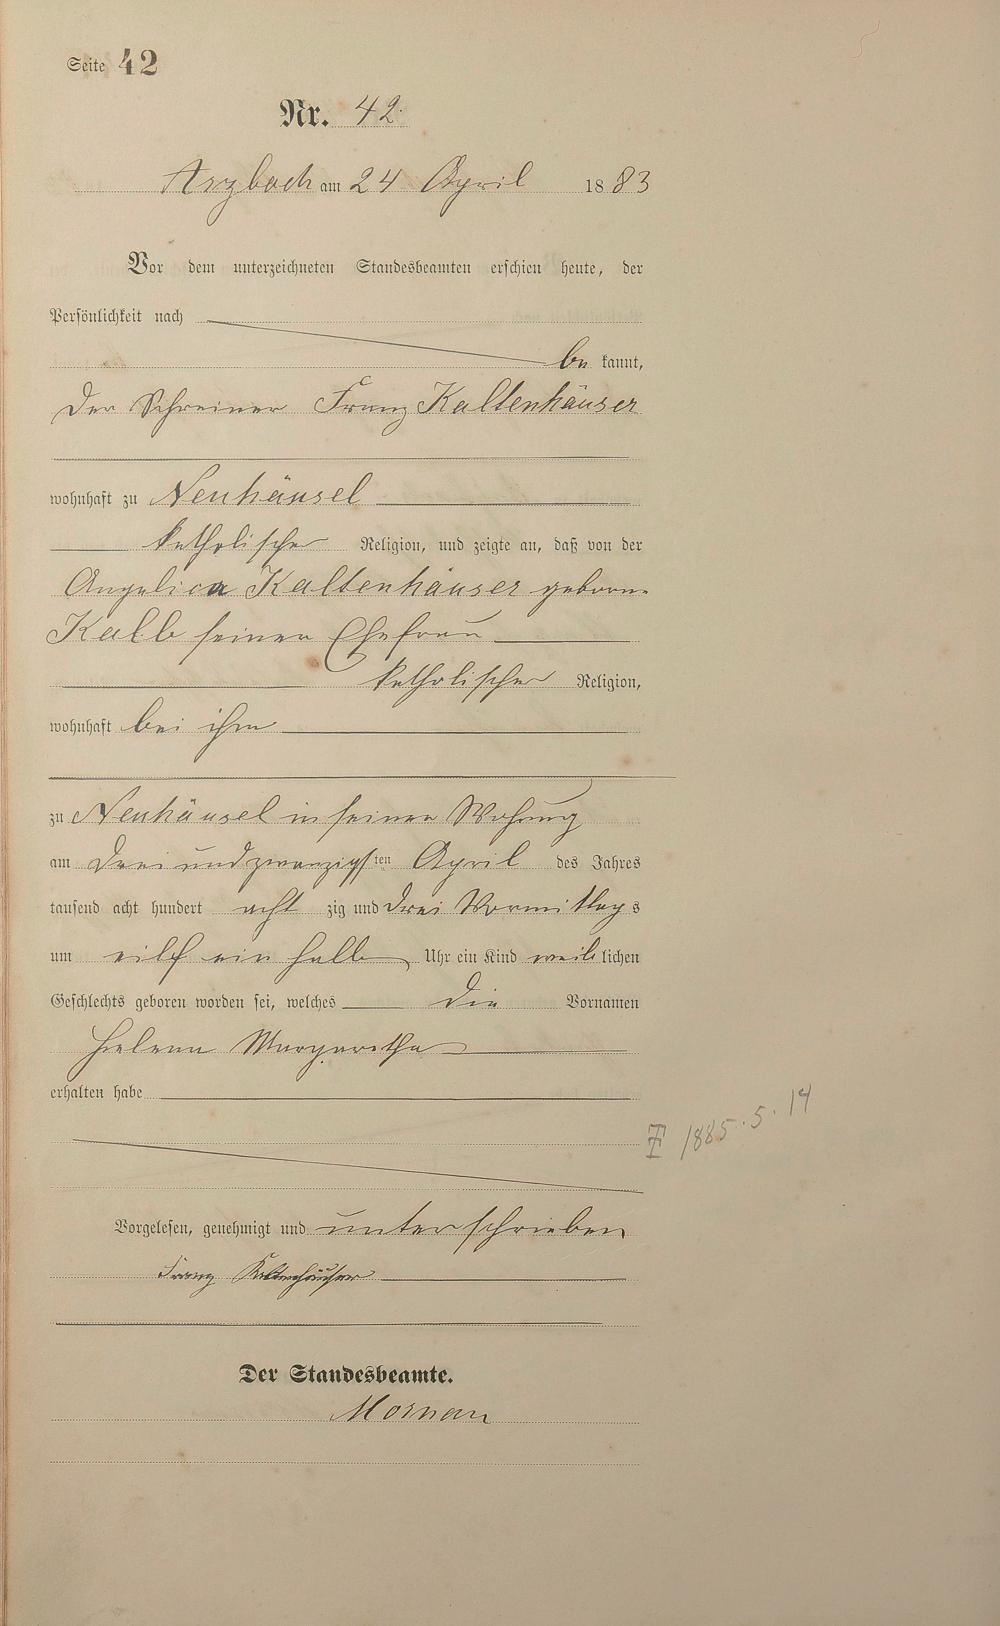 Seite 42
Nr. 42.
Arzbach am 24 April 1883
Vor dem unterzeichneten Standesbeamten erschien heute, der
Persönlichkeit nach
be kannt,
der Schreiner Franz Kaltenhäuser
wohnhaft zu Neuhäusel
katholischer Religion, und zeigte an, daß von der
Angelica Kaltenhäuser geborne
Kalb seiner Ehefrau
katholischer Religion,
wohnhaft bei ihm
zu Neuhäusel in seiner Wohnung
am drei und zwanzigsten April des Jahres
tausend acht hundert acht zig und drei Vormittags
um eilf ein halb Uhr ein Kind weiblichen
Geschlechts geboren worden sei, welches die Vornamen
Helena Margaretha
erhalten habe
1885.5.14
Vorgelesen, genehmigt und unterschrieben
Franz Kaltenhäuser
Der Standesbeamte.